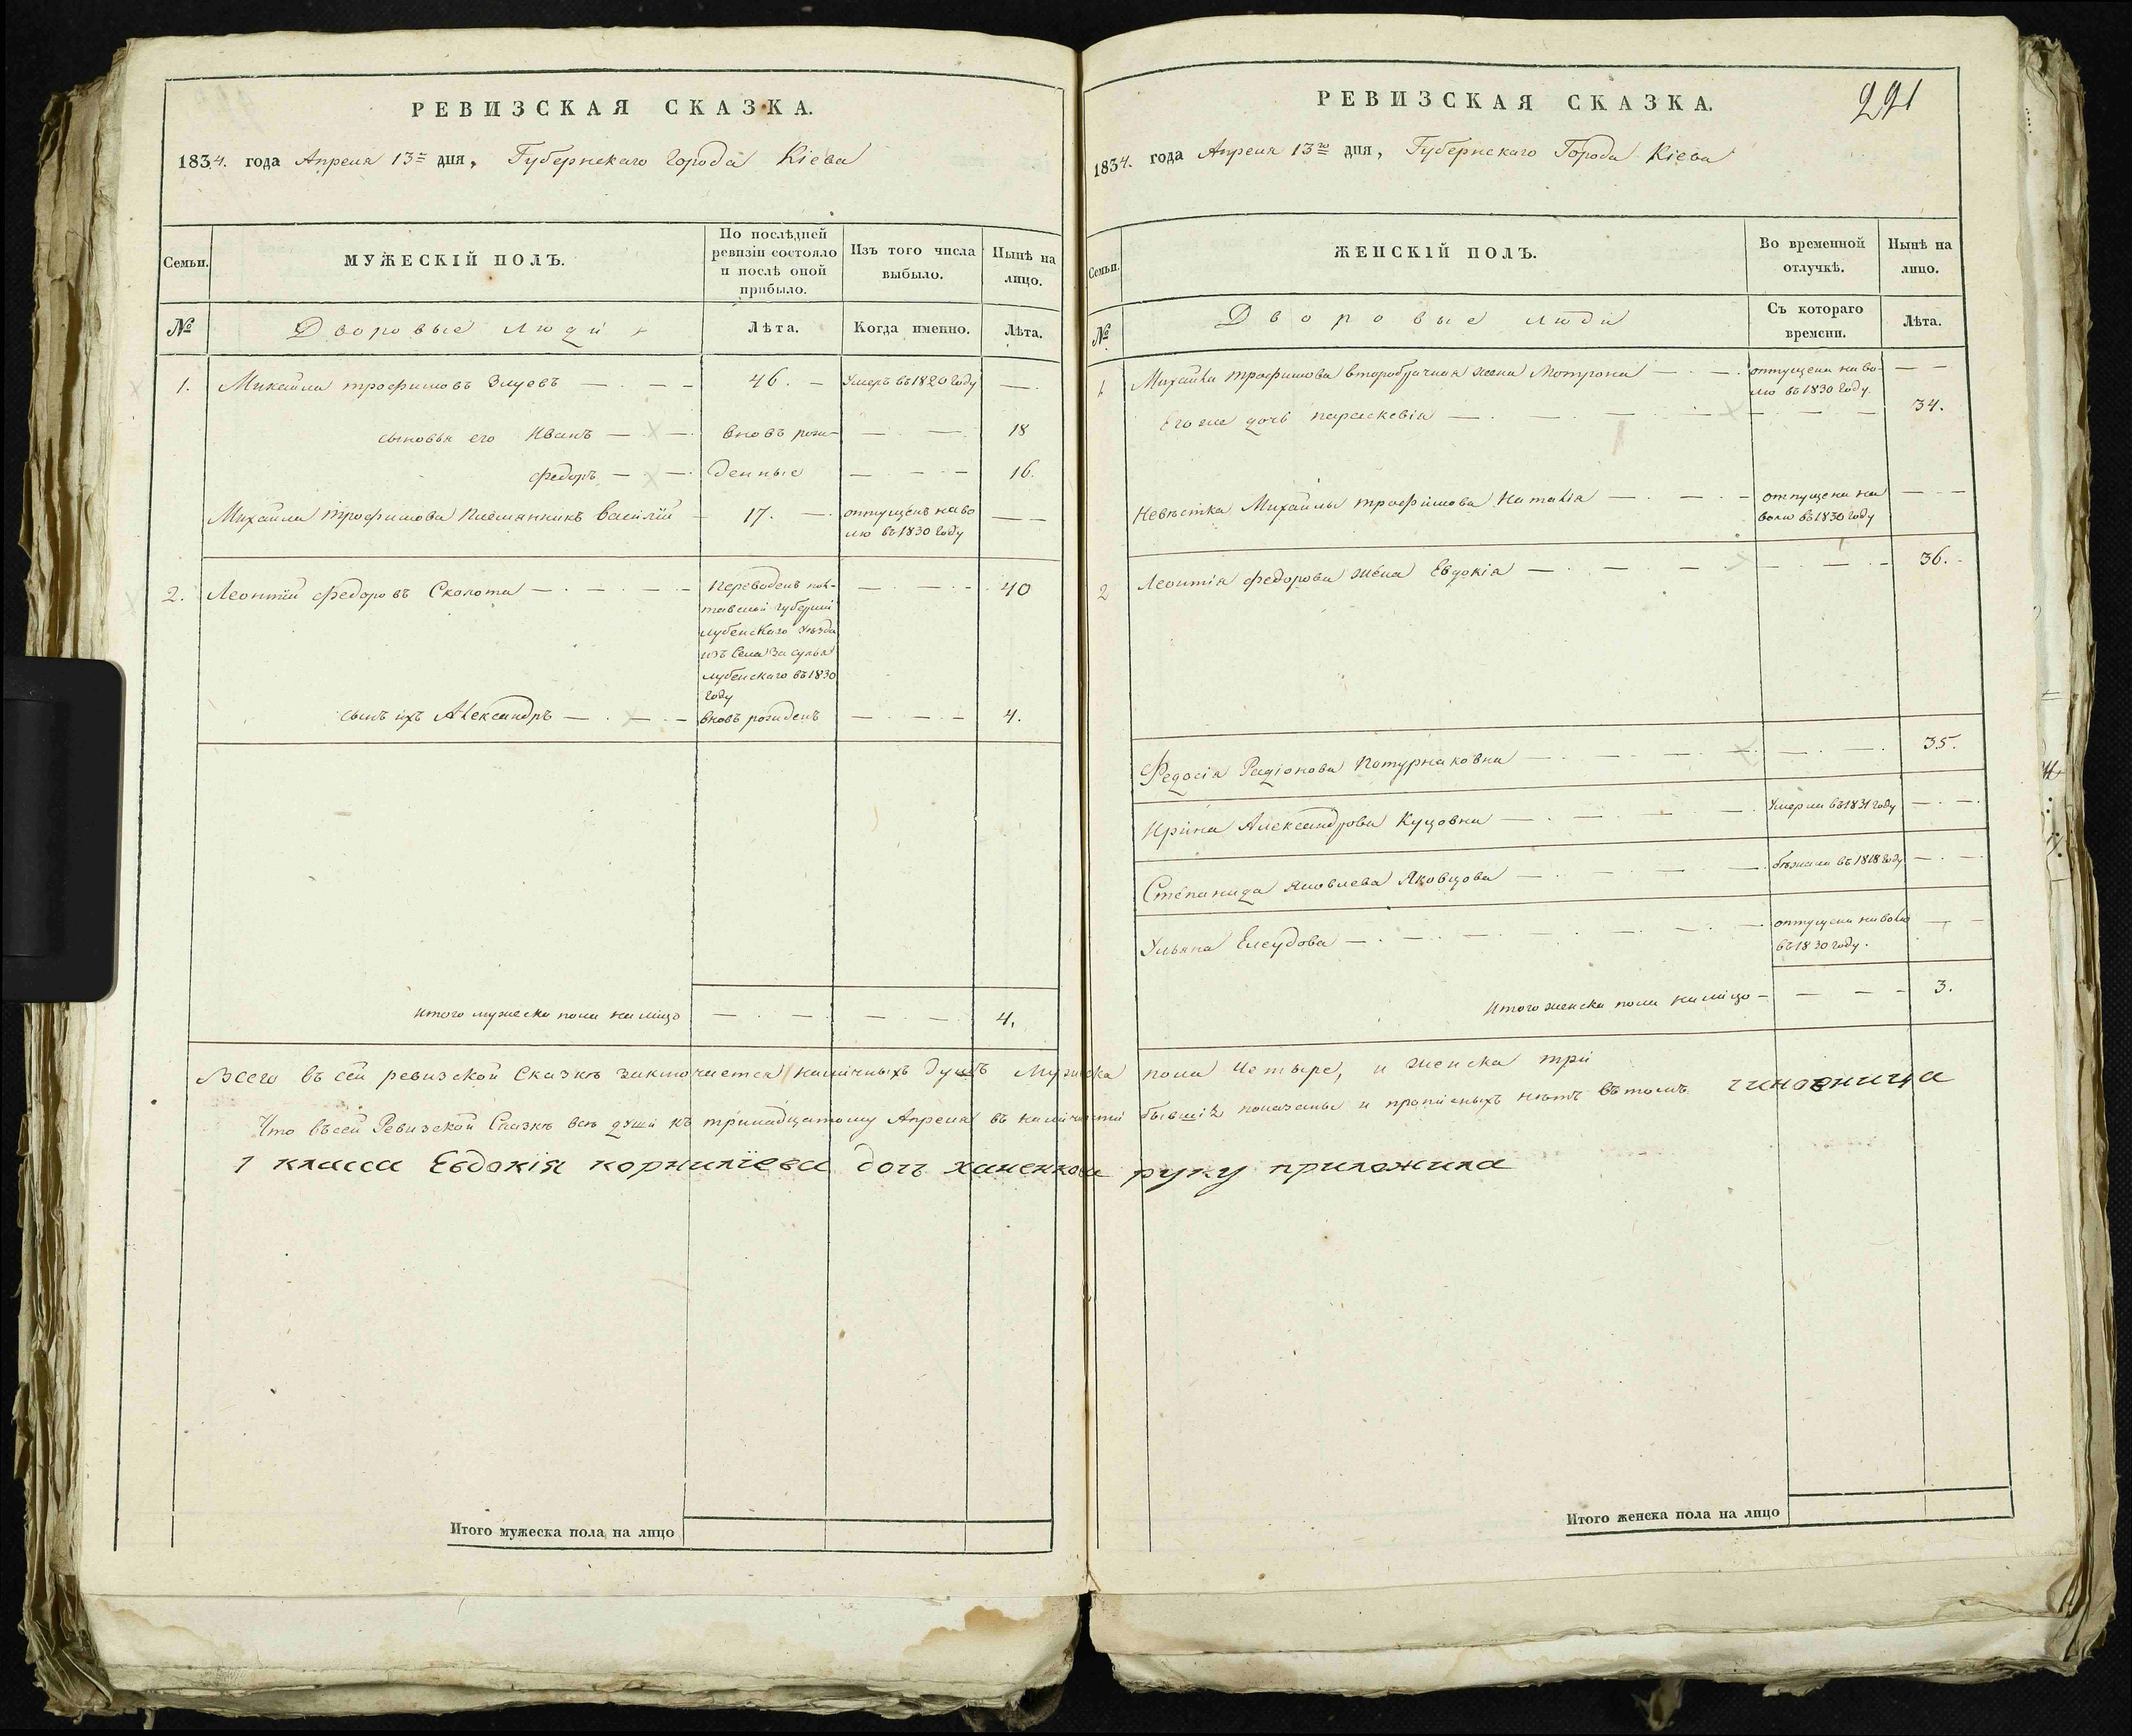 РЕВИЗСКАЯ СКАЗКА.
1834. года Апреля 13го дня, Губернскаго Города Кіева
Семьи.
МУЖЕСКІЙ ПОЛЪ.
По послѣдней
ревизіи состояло
и послѣ оной
прибыло.
Изъ того числа
выбыло.
Нынѣ на
лицо.
№
Дворовые люди
Лѣта.
Когда именно.
Лѣта.
1. Михайла трофимовъ — . — — 46. — Умеръ въ 1820 году — .
сыновья его Иванъ — . — . вновь рож- — . — . 18
федоръ — . — . денные — . — . — 16.
Михайла трофимова племянникъ василій — 17. — . отпущенъ на во — —
лю въ 1830 году
2. Леонтій федоровъ Сколота — . — . — . — Переведенъ пол- — . — . — 40
тавской губерніи
лубенскаго уѣзда
изъ села засулья
лубенскаго въ 1830
году
сынъ ихъ Александръ — . — . — вновь рожденъ — . — . — 4.
итого мужеска пола на лицо — . — . — — . — . 4.
РЕВИЗСКАЯ СКАЗКА.
291
1834. года Апреля 13го дня, Губернскаго Города Кіева
Семьи.
ЖЕНСКІЙ ПОЛЪ.
Во временной
отлучкѣ.
Нынѣ на
лицо.
№
Дворовые люди
Съ котораго
времени.
Лѣта.
1. Михайла трофимова второбрачная жена Мотрона — . — . отпущена на во- — —
лю въ 1830 году.
Его же дочь параскевія — . — . — . — . — 34.
Невѣстка Михайлы трофимова Наталія — . — . — отпущена на — . —
волю въ 1830 году
2 Леонтія федорова жена Евдокія — . — . — . — 36.
Федосія Радіонова Потурнаковна — . — . — . — . 35.
Ирина Александрова Куцовна — . — . — — . Умерла въ 1831 году — . — .
Степанида яковлева Яковцова — . — . — — бѣжала въ 1818 году — . — .
Ульяна Елеудова — . — . — . — . — . — отпущена на волю — . —
въ 1830 году.
Итого женска пола на лицо — — — — 3.
Всего въ сей ревизской сказкѣ заключается наличныхъ душъ Мужеска пола Четыре, и женска три
Что въ сей Ревизской Сказкѣ всѣ души къ тринадцатому Апреля въ наличности бывшіе показаны и прописныхъ нѣтъ въ томъ чиновница
7 класса Евдокія корниліева дочъ ханенкова руку приложила
Итого мужеска пола на лицо
Итого женска пола на лицо